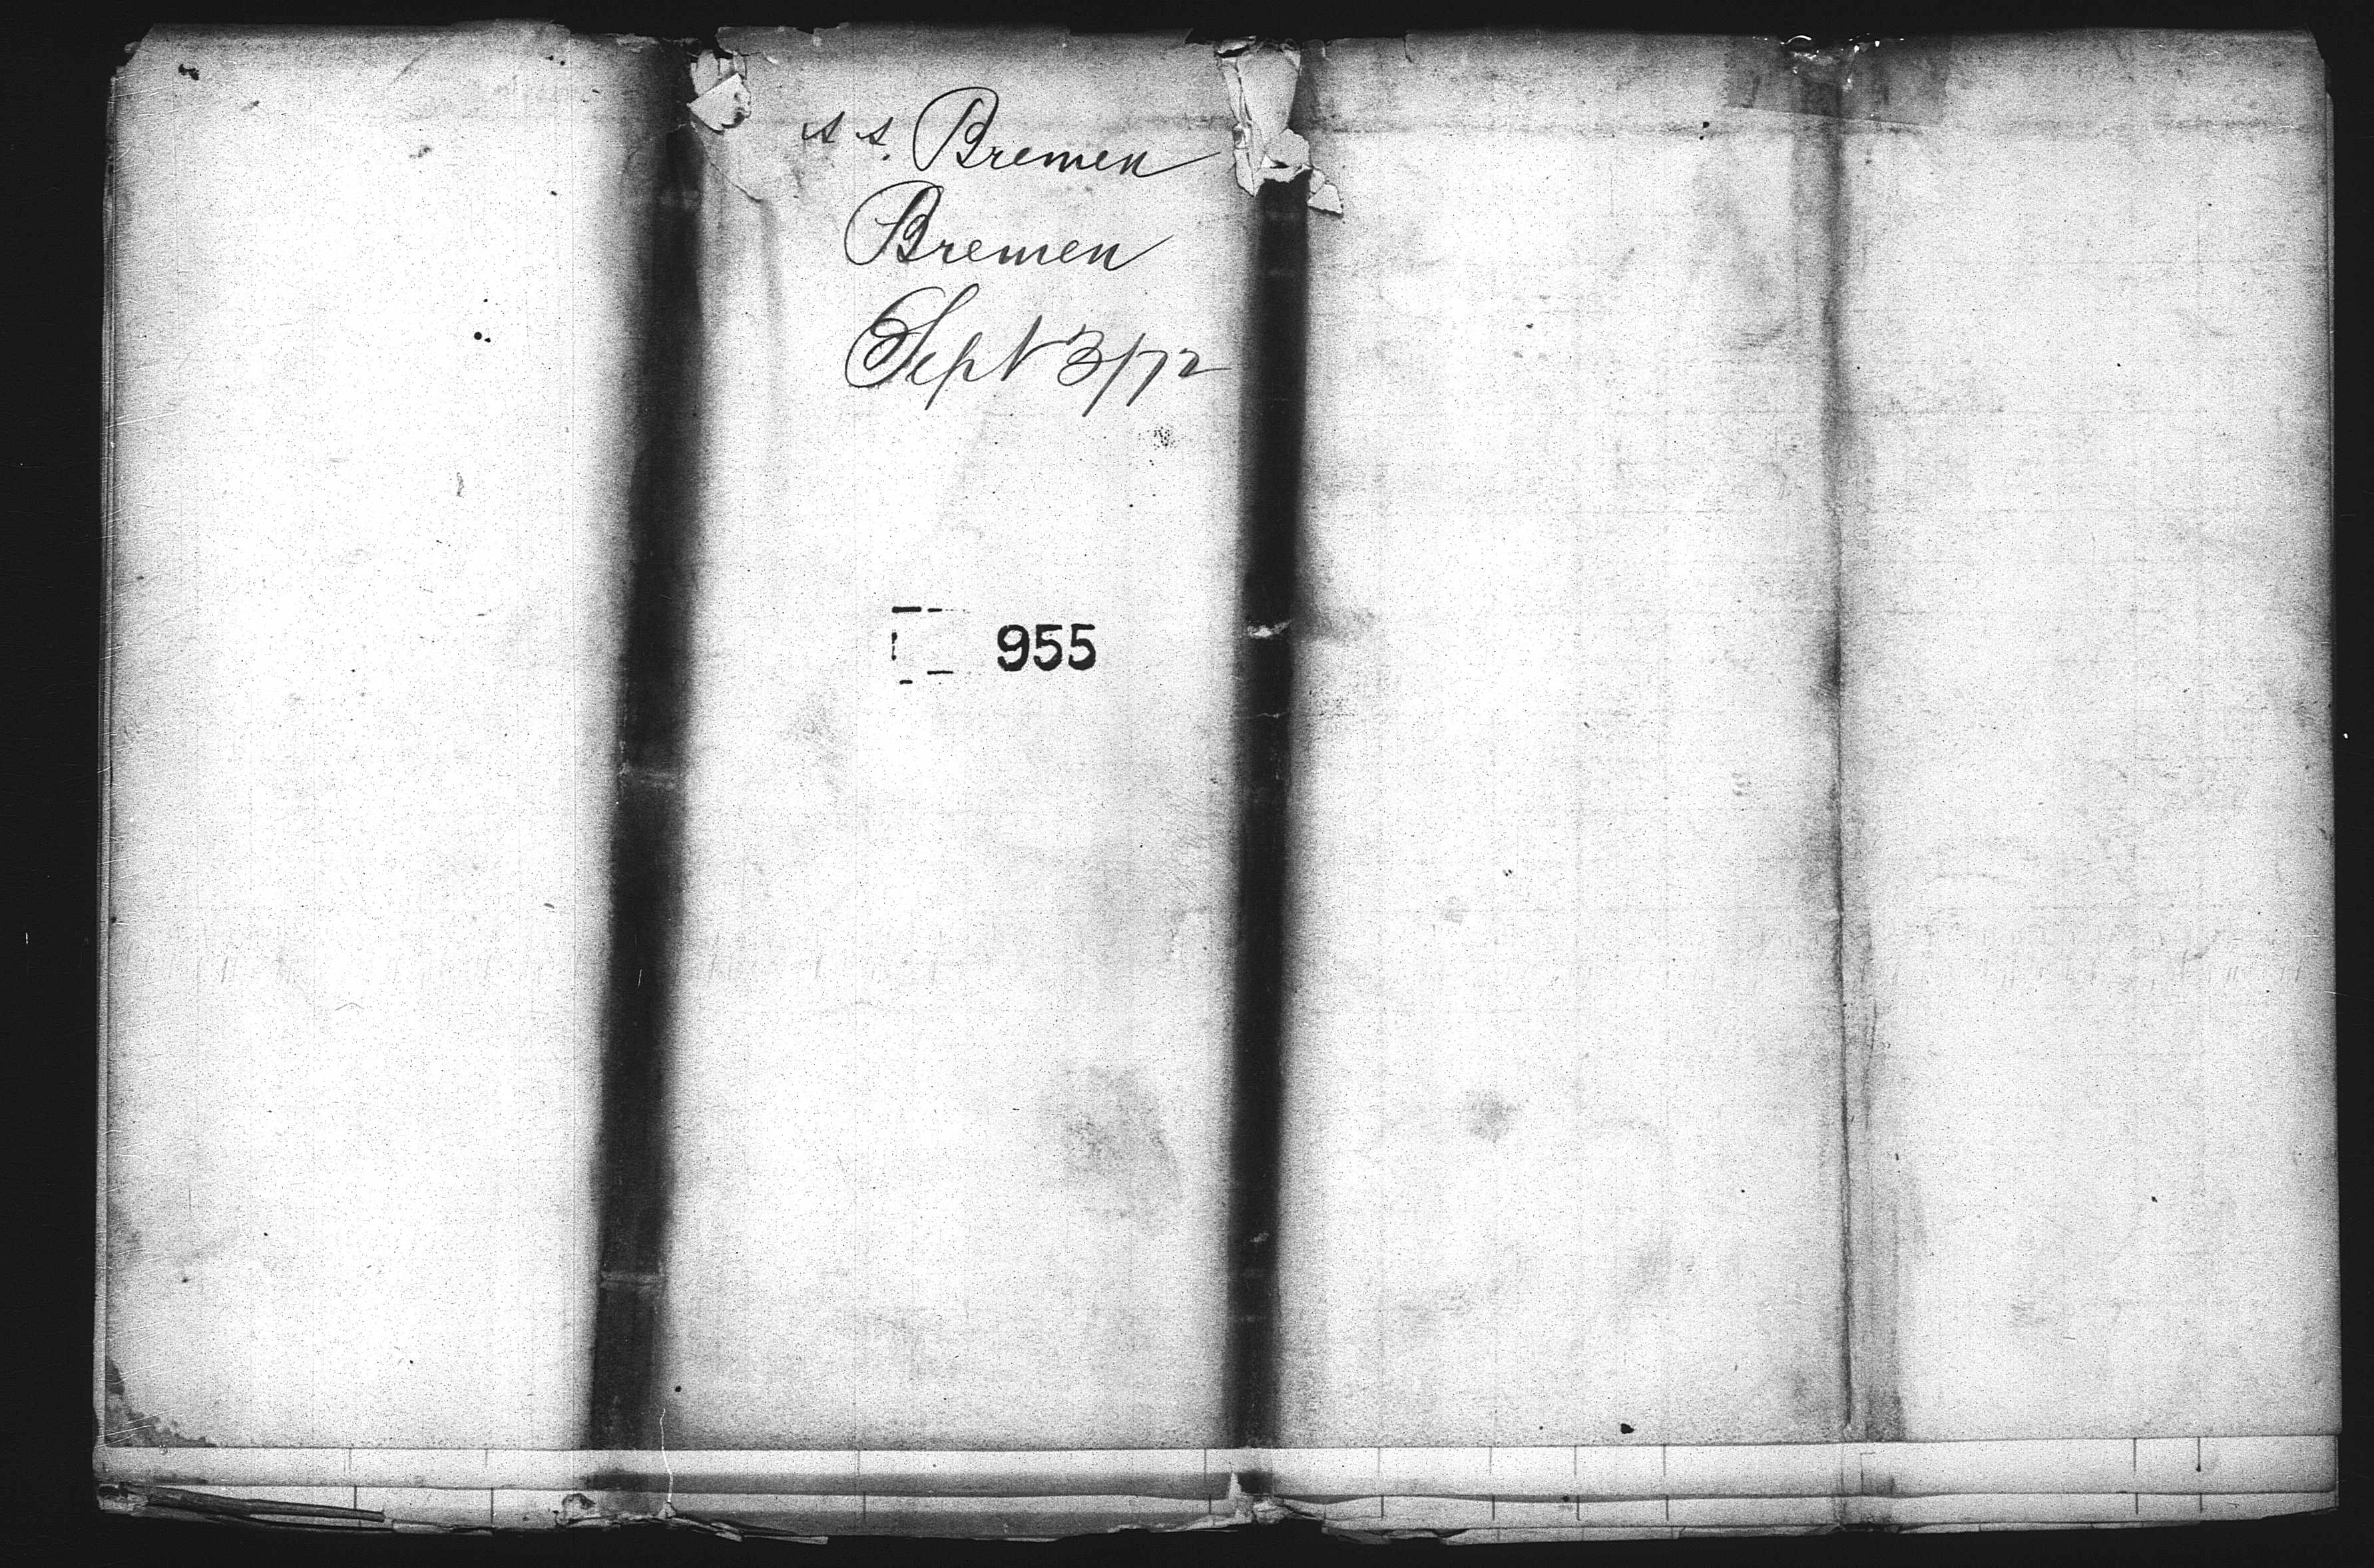 s s. Bremen
Bremen
Sept 3/72
955